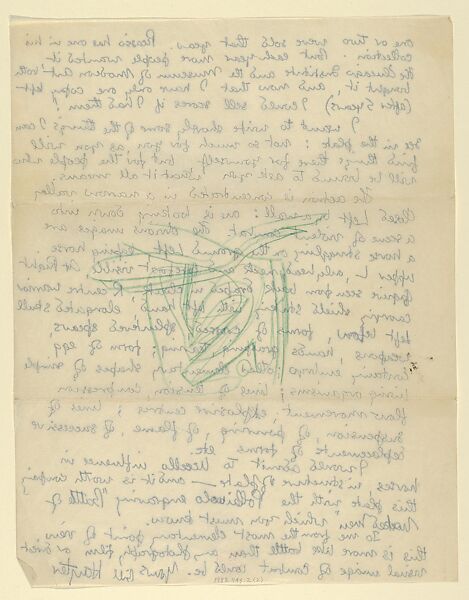 one or two were sold that year. Picasso has one in his
collection. But each year more people wanted it
the Chicago Institute and the Museum of Modern Art both
bought it, and now that I have only one copy left
(after 5 years) I could sell scores if I had them!
I want to write shortly some of the things I can
see in the plate: not so much for you, as you will
find things there for yourself but for the people who
will be bound to ask you what it all means.
The action is concentrated in a narrow valley
closed left by a wall: one is looking down into
a scene of violent combat the obvious images are
a horse struggling on the ground left, leaping horse
upper L, and
figure seen from back, R centre, warrior
carrying shield left hand elongated skull
left below, forms of crossed splintered spears
weapons, hands form of egg
containing embryo shapes of simple
living organisms; lines of tension, compression
flow movement; explosion centres; lines of
suspension, of pouring, of flame, of successive
replacements of forms etc.
I would admit to Uccello influence in
horses in structure of plate — and it is worth comparing
this plate with the Pollaiuolo engraving "Battle of
Naked Men" which you must know.
To me from the most elementary point of view
this is more like battle than any photograph, film, or direct
visual image of combat could be. Yours Bill Hayter